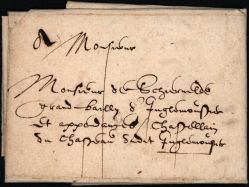 A Monsieur
Monsieur de Schiervelde
grand bailly d'Inglemoustier
et appendances Chastellain
du Chasteau dudit Inglemoustier